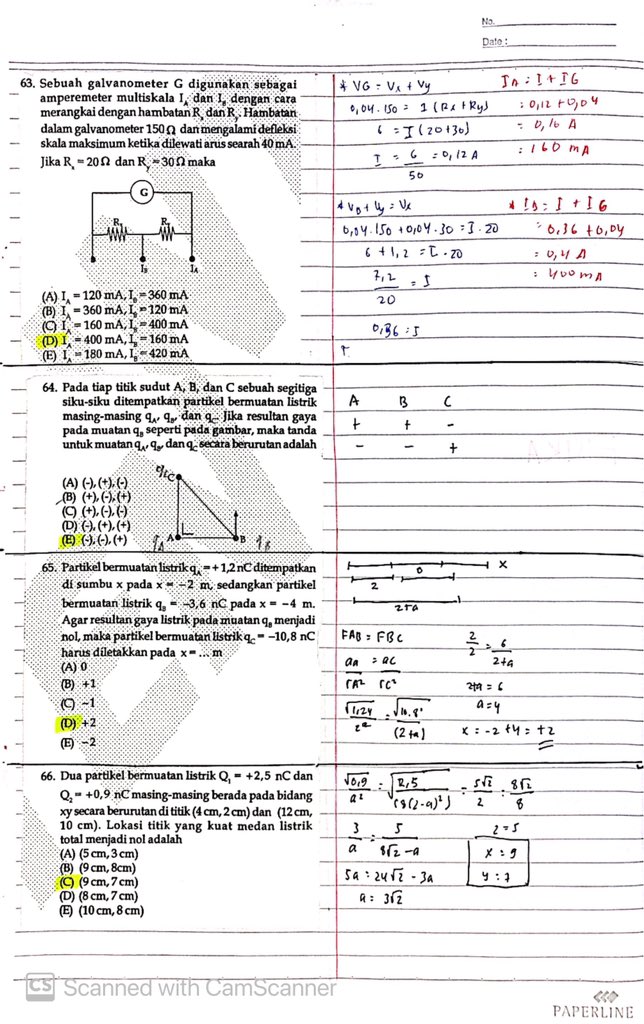 No.
Date :
63. Sebuah galvanometer G digunakan sebagai
amperemeter multiskala I_A dan I_B dengan cara
merangkai dengan hambatan R_x dan R_y. Hambatan
dalam galvanometer 150 Ω dan mengalami defleksi
skala maksimum ketika dilewati arus searah 40 mA.
Jika R_x = 20 Ω dan R_y = 30 Ω maka
G
I_B
I_A
(A) I_A = 120 mA, I_B = 360 mA
(B) I_A = 360 mA, I_B = 120 mA
(C) I_A = 160 mA, I_B = 400 mA
(D) I_A = 400 mA, I_B = 160 mA
(E) I_A = 180 mA, I_B = 420 mA
* VG = Vx + Vy
0,04.150 = I (Rx + Ry)
6 = I (20+30)
I = 6/50 = 0,12 A
IA = I + IG
= 0,12 + 0,04
= 0,16 A
= 160 mA
+ Vy = Vx
0,04.150 + 0,04.30 = I.20
6 + 1,2 = I.20
7,2/20 = I
0,36 = I
* IB = I + IG
= 0,36 + 0,04
= 0,4 A
= 400 mA
64. Pada tiap titik sudut A, B, dan C sebuah segitiga
siku-siku ditempatkan partikel bermuatan listrik
masing-masing q_A, q_B, dan q_C. Jika resultan gaya
pada muatan q_B seperti pada gambar, maka tanda
untuk muatan q_A, q_B, dan q_C secara berurutan adalah
(A) (-), (+), (-)
(B) (+), (-), (+)
(C) (+), (-), (-)
(D) (-), (+), (+)
(E) (-), (-), (+)
C
A
B
A B C
+ + -
- - +
65. Partikel bermuatan listrik q_A = +1,2 nC ditempatkan
di sumbu x pada x = −2 m, sedangkan partikel
bermuatan listrik q_B = −3,6 nC pada x = −4 m.
Agar resultan gaya listrik pada muatan q_B menjadi
nol, maka partikel bermuatan listrik q_C = −10,8 nC
harus diletakkan pada x = ... m
(A) 0
(B) +1
(C) −1
(D) +2
(E) −2
x
2
2+a
FAB = FBC
2/2 = 6/2+a
2+a = 6
a = 4
x = -2 + 4 = +2
66. Dua partikel bermuatan listrik Q₁ = +2,5 nC dan
Q₂ = +0,9 nC masing-masing berada pada bidang
xy secara berurutan di titik (4 cm, 2 cm) dan (12 cm,
10 cm). Lokasi titik yang kuat medan listrik
total menjadi nol adalah
(A) (5 cm, 3 cm)
(B) (9 cm, 8cm)
(C) (9 cm, 7 cm)
(D) (8 cm, 7 cm)
(E) (10 cm, 8 cm)
3/a = 5/8√2-a
5a = 24√2 - 3a
a = 3√2
x = 9
y = 7
CS Scanned with CamScanner
PAPERLINE